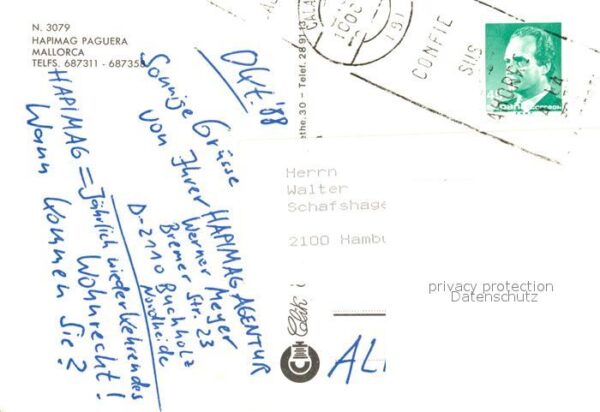 N. 3079
HAPIMAG PAGUERA
MALLORCA
TELFS. 687311 - 687358
Okt. '88
Sonnige Grüsse
von Ihrer HAPIMAG AGENTUR
Werner Meyer
Bremer Str. 23
D-2110 Buchholz
Nordheide
HAPIMAG = Jährlich wiederkehrendes
Wohnrecht!
Wann kommen Sie?
CONFIE
SUS
the. 30 - Telef. 28 91 13
Herrn
Walter
Schafshage
2100 Hambu
privacy protection
Datenschutz